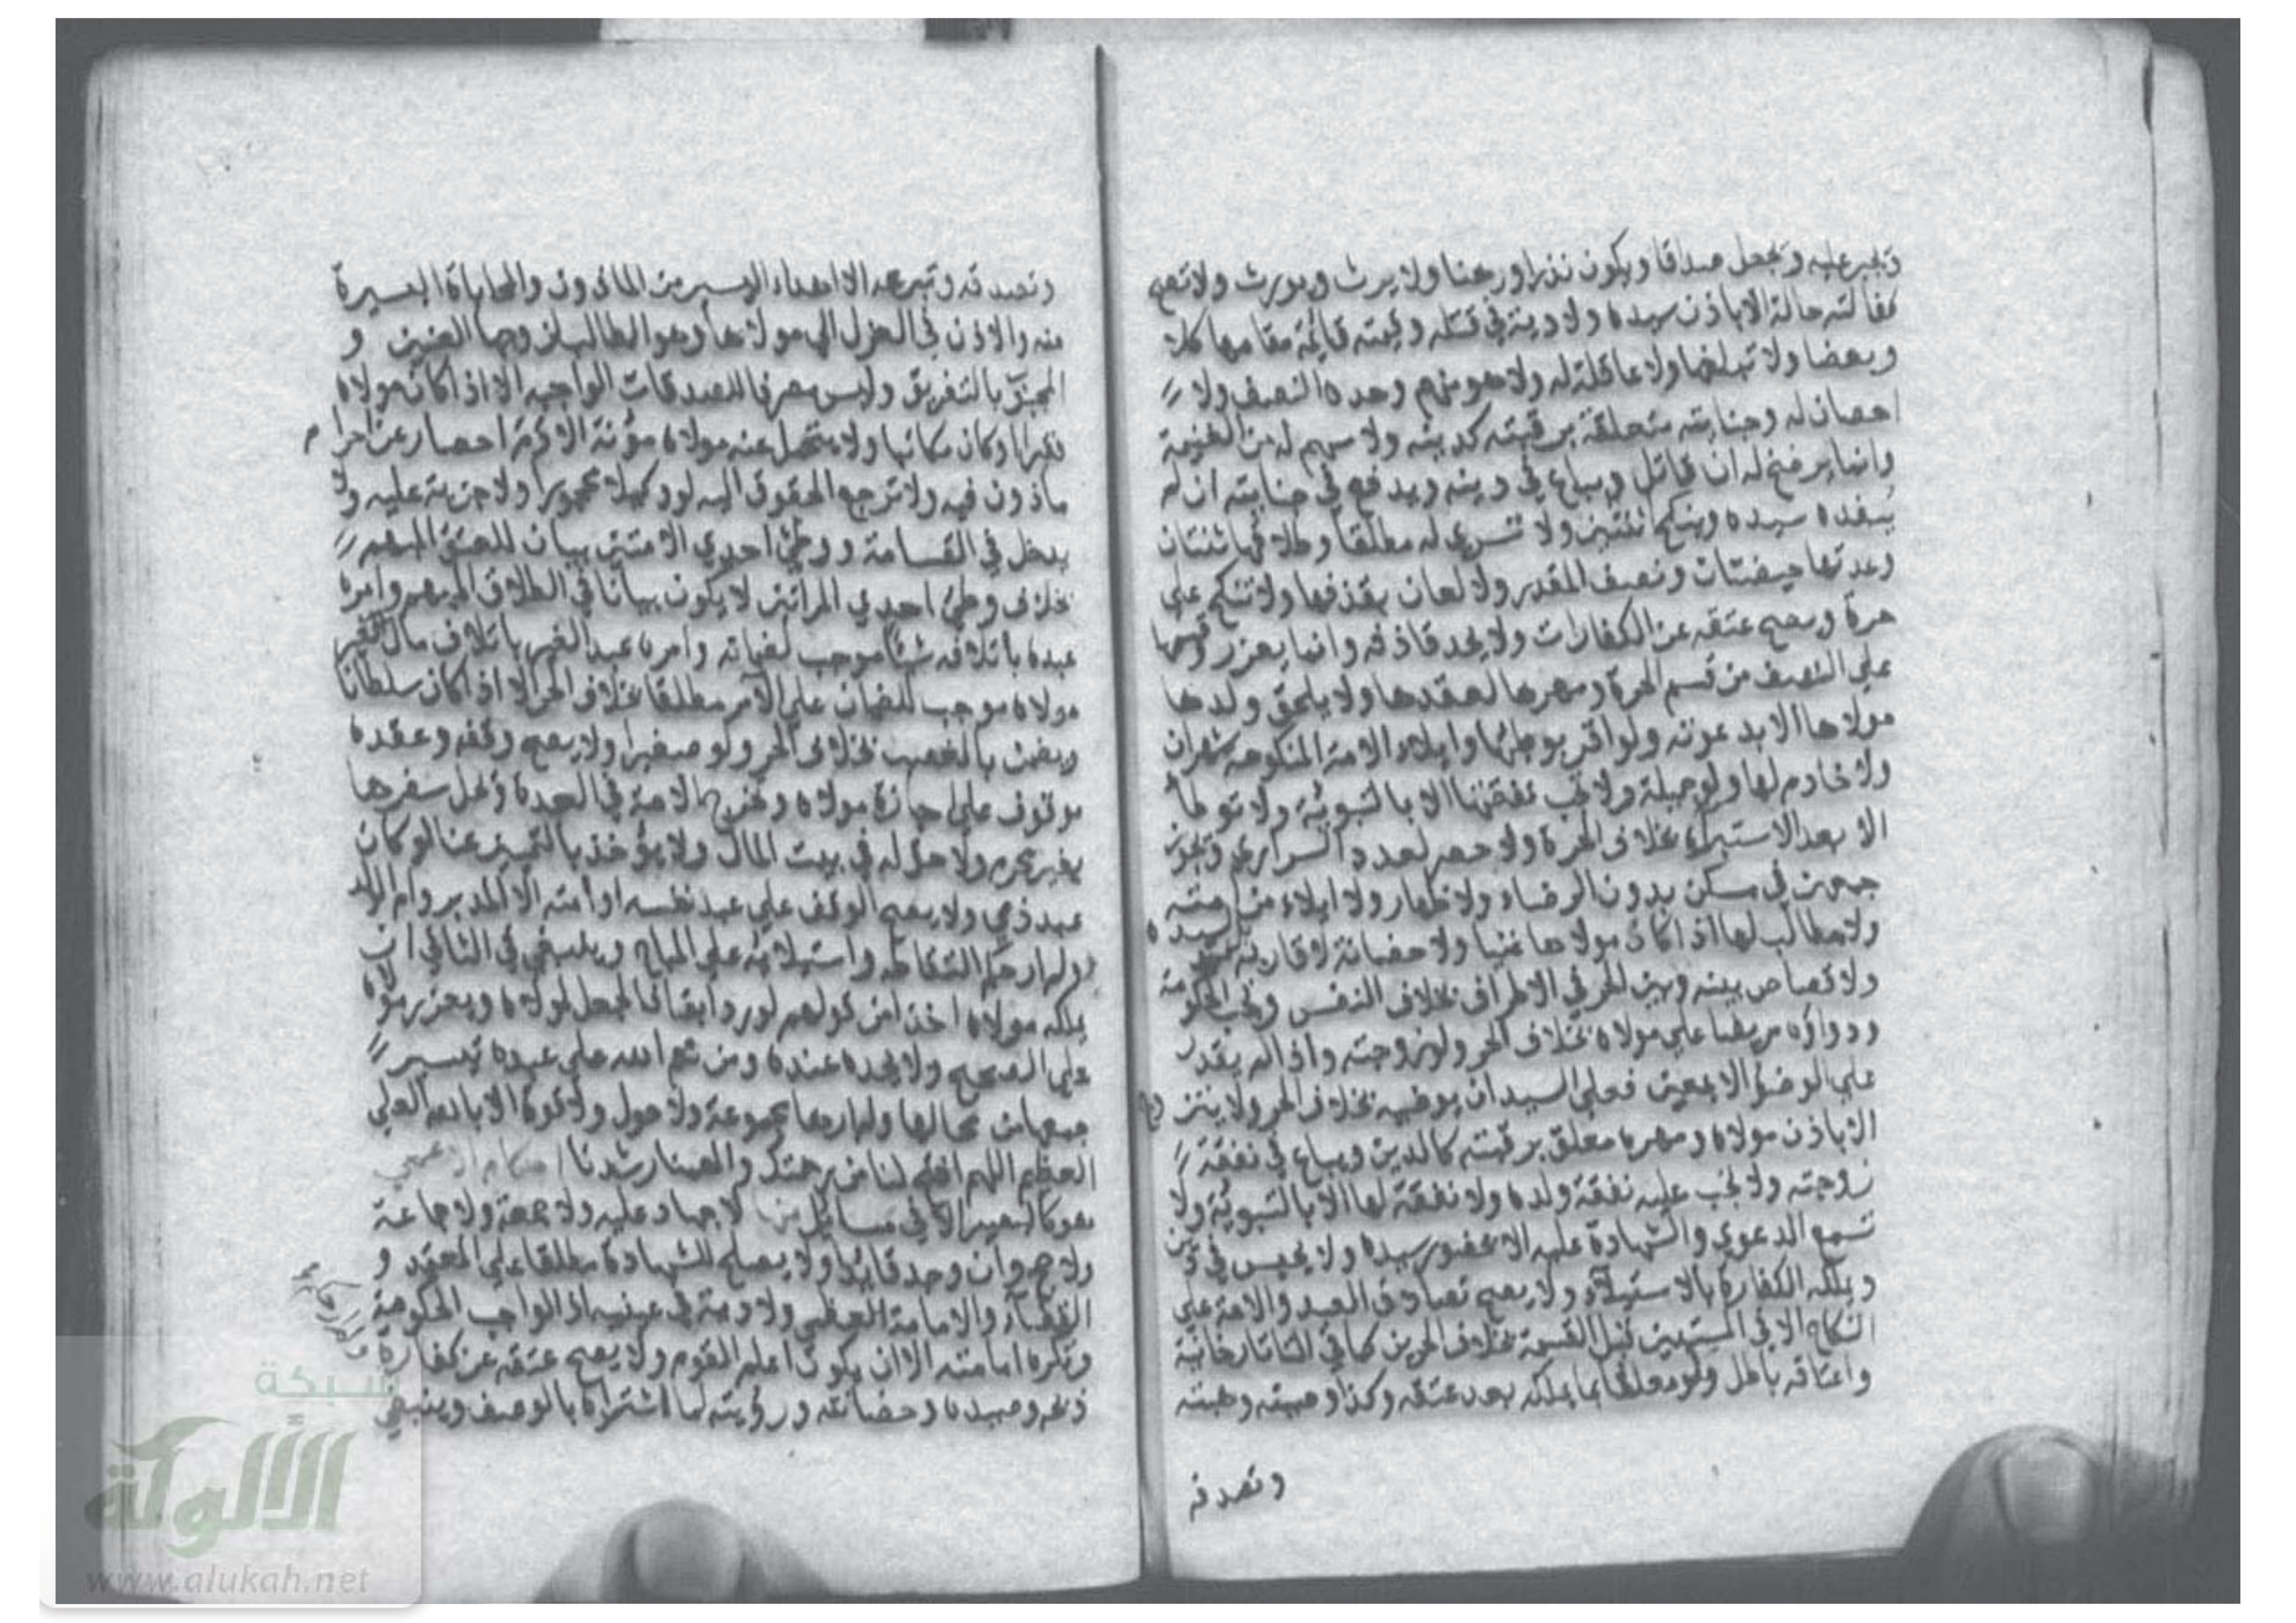 ويجبر عليه ويجعل صداقا ويكون نذرا ورهنا ولا يرث ويورث ولا تصح
كفالته حالة الا باذن سيده ولا دية في قتله وقيمته قائمة مقامها كلا
وبعضا ولا تبلغها ولا عاقلة له ولا هو منهم وحده النصف ولا
احصان له وجنايته متعلقة برقبته كدينه ولا سهم له من الغنيمة
وانما يرضخ له ان قاتل ويباع في دينه ويدفع في جنايته ان لم
يفده سيده وينكح اثنتين ولا تسري له مطلقا وطلاقها ثنتان
وعدتها حيضتان ونصف المقدر ولا لعان بقذفها ولا تنكح علي
حرة ويصح عتقه عن الكفارات ولا يحد قاذفه وانما يعزر وقسمها
علي النصف من قسم الحرة ومهرها لعقدها ولا يلحق ولدها
مولاها الا بدعوته ولو اقر بوطئها وايلاء الامة المنكوحة شهران
ولا خادم لها ولو جميلة ولا تجب نفقتها الا بالتبوئة ولا توطأ
الا بعد الاستبراء بخلاف الحرة ولا حصر لعدد السراري ويجوز
جمعهن في مسكن بدون الرضاء ولا ظهار ولا ايلاء من امته
ولا مطالب لها اذا كان مولاها عنينا ولا حضانة لاقاربه لسيده
ولا قصاص بينه وبين الحر في الاطراف بخلاف النفس وتجب الحكومة
ودواؤه مريضا علي مولاه بخلاف الحر ولو زوجته واذا لم يقدر
علي الوضوء الا بمعين فعلي السيد ان يوضيه بخلاف الحر ولا يتزوج
الا باذن مولاه ومهره معلق برقبته كالدين ويباع في نفقة
زوجته ولا تجب عليه نفقة ولده ولا نفقة لها الا بالتبوئة ولا
تسمع الدعوي والشهادة عليه الا بحضور سيده ولا يحبس في دين
ويملكه الكفار بالاستيلاء ولا يصح تصادق العبد والامة علي
النكاح الا في المسبيين قبل القسمة بخلاف الحرين كما في التاتارخانية
واعتاقه باطل ولو معلقا بما يملكه بعد عتقه وكذا وصيته وهبته
وتصدقه
وتصدقه وتبرعه الا اهداء اليسير من الماذون والمحاباة اليسيرة
منه والاذن في العزل الي مولاها وهو المطالب لزوجها العنين و
المجبوب بالتفريق وليس مصرفا للصدقات الواجبه الا اذا كان مولاه
فقيرا او كان مكاتبا ولا يتحمل عنه مولاه مؤنة الا دم احصار عن احرام
ماذون فيه ولا ترجع الحقوق اليه لو وكيلا محجورا ولا جزية عليه ولا
يدخل في القسامة ووطئ احدي الامتين بيان للعتق المبهم
بخلاف وطئ احدي المراتين لا يكون بيانا في الطلاق المبهم وامره
عبده باتلاف شئ موجب لضمانه وامره عبد الغير باتلاف مال الغير
مولاه موجب للضمان علي الآمر مطلقا بخلاف الحر الا اذا كان سلطانا
ويضمن بالغصب بخلاف الحر ولو صغيرا ولا يصح وقفه وعقده
موقوف علي اجازة مولاه وتخرج الامة في العدة ويحل سفرها
بغير محرم ولا حق له في بيت المال ولا يؤخذ بالتمييز عنا لو كان
عبد ذمي ولا يصح الوقف علي عبد نفسه او امته الا المدبر وام الولد
ولم ار حكم التقاطه واستيلائه علي المباح وينبغي في الثاني ان
يملكه مولاه اخذا من قولهم لو رد ابقا فالجعل لمولاه ويعزره مولاه
علي الصحيح ولا يحده عندنا ومن نعم الله علي عبده تيسير
جمعها من محالها ولم ارها مجموعة ولا حول ولا قوة الا بالله العلي
العظيم اللهم افتح لنا من رحمتك والهمنا رشدنا احكام الاعمي
هو كالبصير الا في مسائل منها لا جهاد عليه ولا جمعة ولا جماعة
ولا حج وان وجد قائدا ولا يصلح للشهادة مطلقا علي المعتمد و
القضاء والامامة العظمي ولا دية في عينيه اذ الواجب الحكومة
وتكره امامته الا ان يكون اعلم القوم ولا يصح عتقه عن كفارة
ذبحه وصيده وحضانته ورؤيته لما اشتراه بالوصف وينبغي
ولم ار حكم
شبكة
الألوكة
www.alukah.net